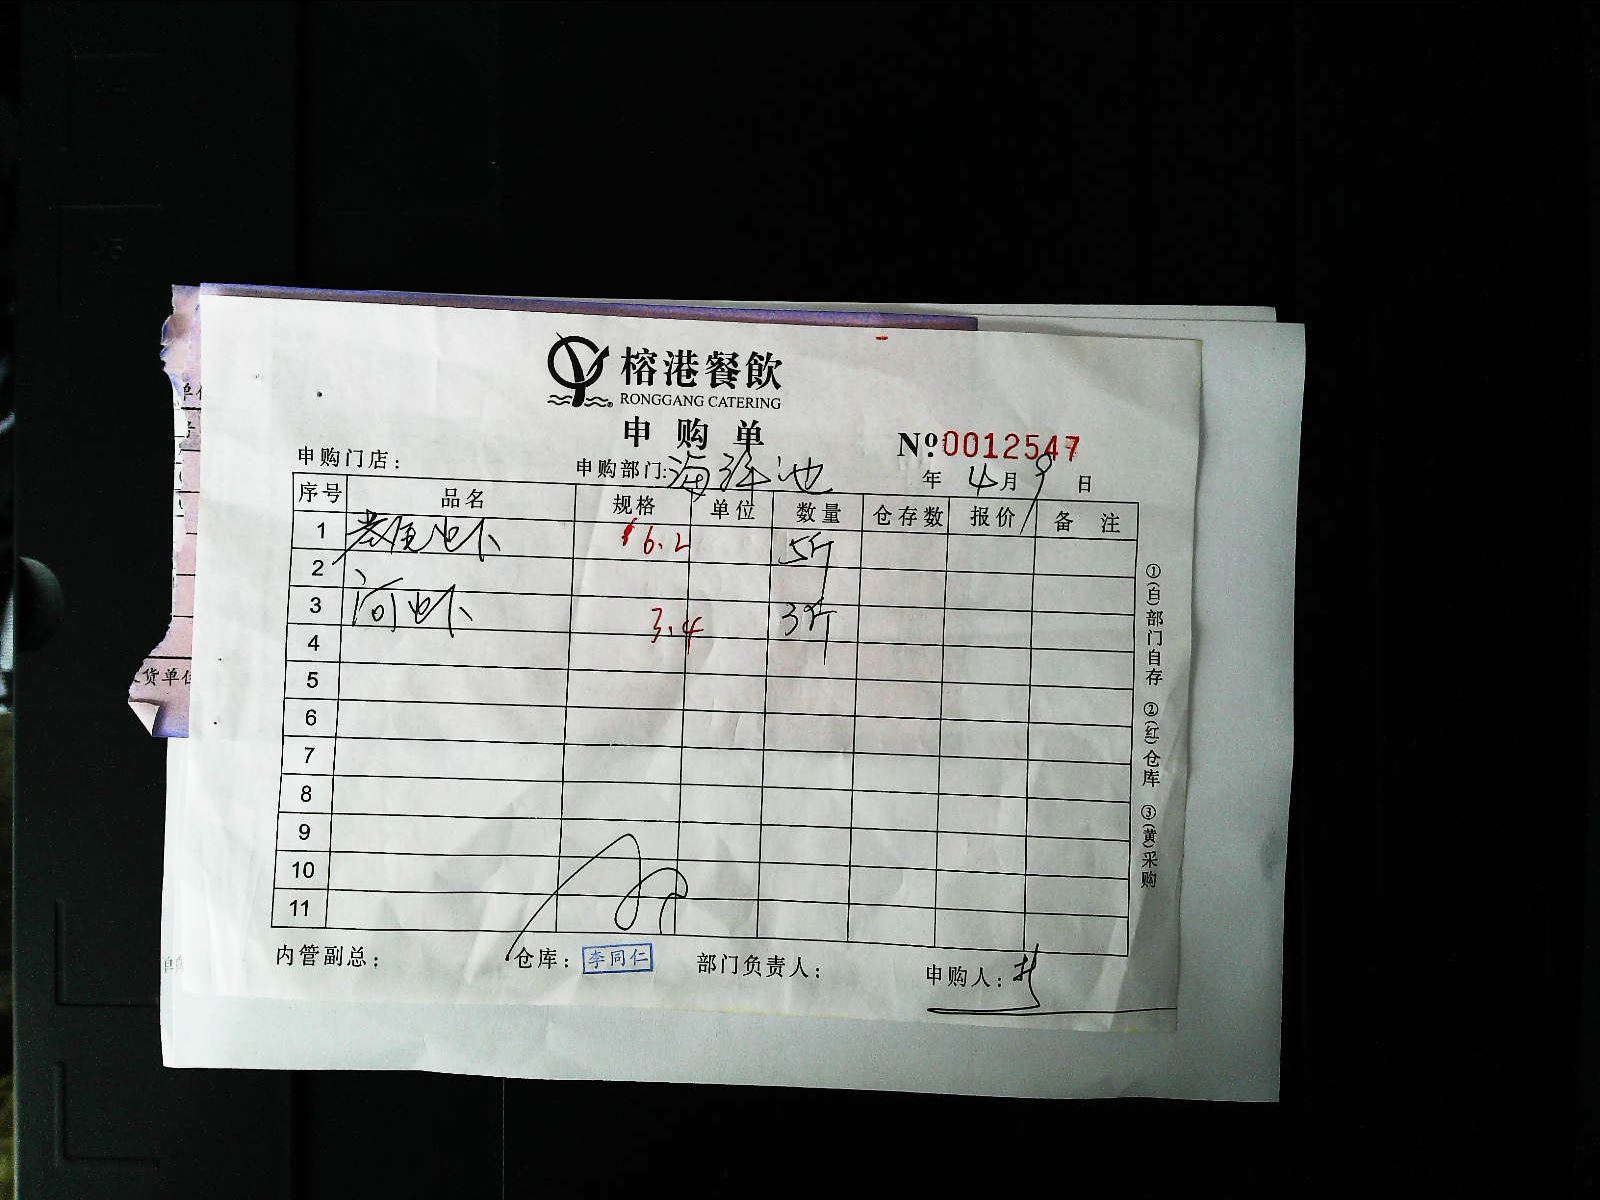 榕港餐飲
RONGGANG CATERING
申购单
№0012547
申购门店：
申购部门:海鲜池
年 4月9日
序号 品名 规格 单位 数量 仓存数 报价 备注
1 6.2 5斤
2
3 河虾 3.4 3斤
4
5
6
7
8
9
10
11
①(白)部门自存 ②(红)仓库 ③(黄)采购
内管副总： 仓库：李同仁 部门负责人： 申购人：
货单位